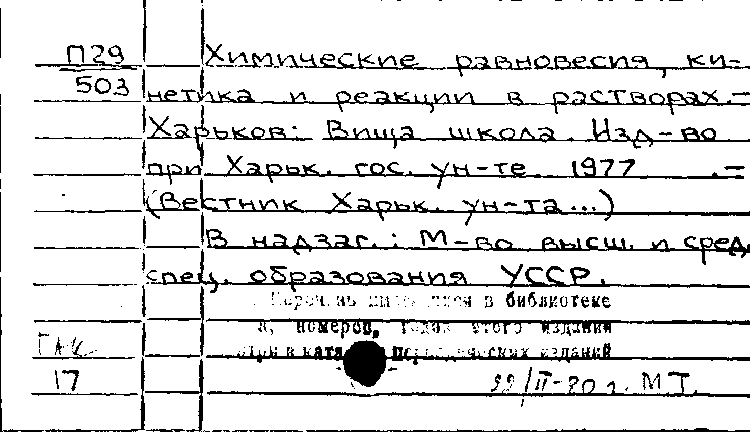 П29
503
Химические равновесия, ки-
нетика и реакции в растворах.–
Харьков: Вища школа. Изд-во
при Харьк. гос. ун-те 1977 .–
(Вестник Харьк. ун-та...)
В надзаг.: М-во высш. и сред.
спец. образования УССР.
в библиотеке
номеров, годов этого издания
периодических изданий
17
II-80 г. МТ.